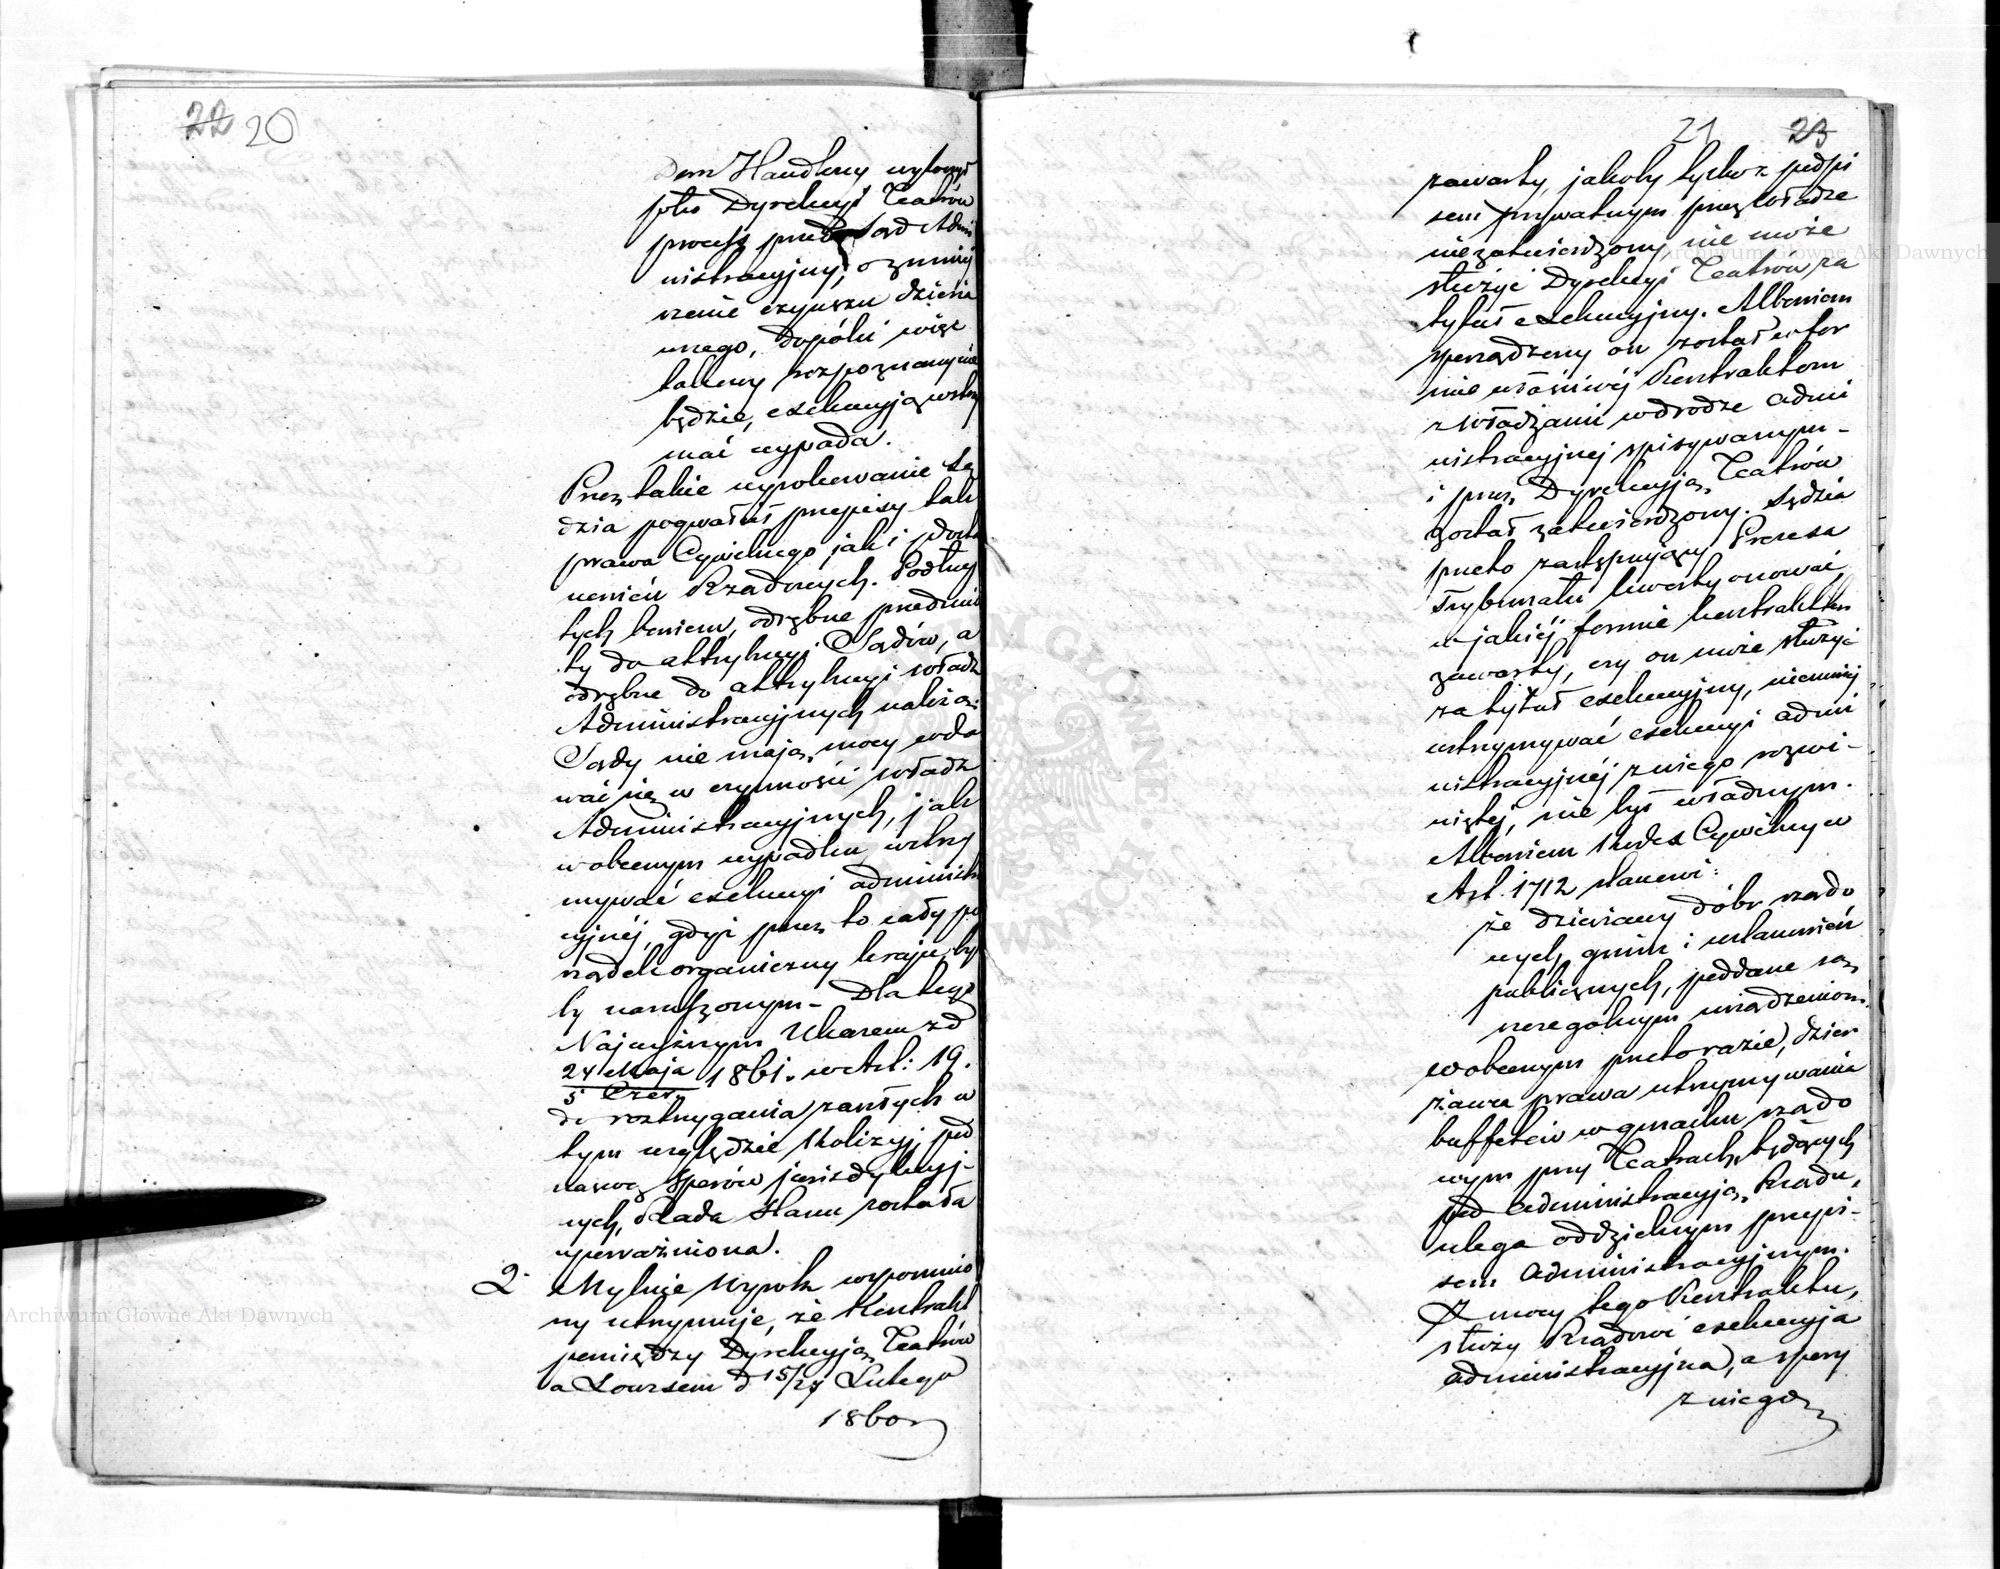 22 20
Dom Handlowy wytoczył
jako Dyrekcyi Teatrów
process przed Sąd Admi
nistracyjny, o zmniej
szenie czynszu dzierża
wnego, dopóki więc
takowy rozpoznany nie
będzie, exekucyją wstrzy
mać wypada.
Przez takie wyrokowanie Sę
dzia pogwałcił przepisy tak
prawa Cywilnego jak i posta
nowień Rządowych. Podług
tych bowiem, odrębne przedmio
ty do attrybucyi Sądów, a
odrębne do attrybucyi władz
Administracyjnych należą:
Sądy nie mają mocy wda
wać się w czynności władz
Administracyjnych, jak
w obecnym wypadku wstrzy
mywać exekucyi administra
cyjnéj, gdyż przez to cały po
rządek organiczny kraju, by
ły naruszonym – Dla tego
Najwyższym Ukazem z d
24 Maja
5 Czer. 1861. w Art: 19.
do rozstrzygania zaszłych w
tym względzie Kolizyj, pod
nazwą Sporów jurisdykcyj-
nych, Rada Stanu została
upoważniona.
2. Mylnie Wyrok wspomnio
ny utrzymuje, że Kontrakt
pomiędzy Dyrekcyją Teatrów
a Loursem d 15/27 Lutego
1860 r
21 23
zawarty, jakoby tylko z podpi
sem prywatnym przez Władze
niezatwierdzony, nie może
służyć Dyrekcyi Teatrów za
tytuł exekucyjny. Albowiem
sporządzony on został w for
mie właściwéj Kontraktom
z Władzami w drodze admi
nistracyjnej spisywanym –
i przez Dyrekcyją Teatrów
został zatwierdzony. Sędzia
przeto zastępujący Prezesa
Trybunału kwestyonować
w jakiéj formie kontrakt ten
zawarty, czy on może służyć
za tytuł exekucyjny, niemniéj
wstrzymywać exekucyi admi
nistracyjnéj z niego rozwi-
niętéj, nie był władnym.
Albowiem Kodex Cywilny w
Art. 1712 stanowi:
że dzierżawy dóbr rządo
wych, gmin i ustanowień
publicznych, poddane są
szczególnym urządzeniom.
w obecnym przeto razie, dzier
żawa prawa utrzymywania
buffetów w gmachu rządo
wym przy Teatrach, będących
pod administracyją Rządu,
ulega oddzielnym przepi-
som administracyjnym.
Z mocy tego Kontraktu,
służy Rządowi exekucyja
administracyjna, a spory
z niego
Archiwum Główne Akt Dawnych
Archiwum Główne Akt Dawnych